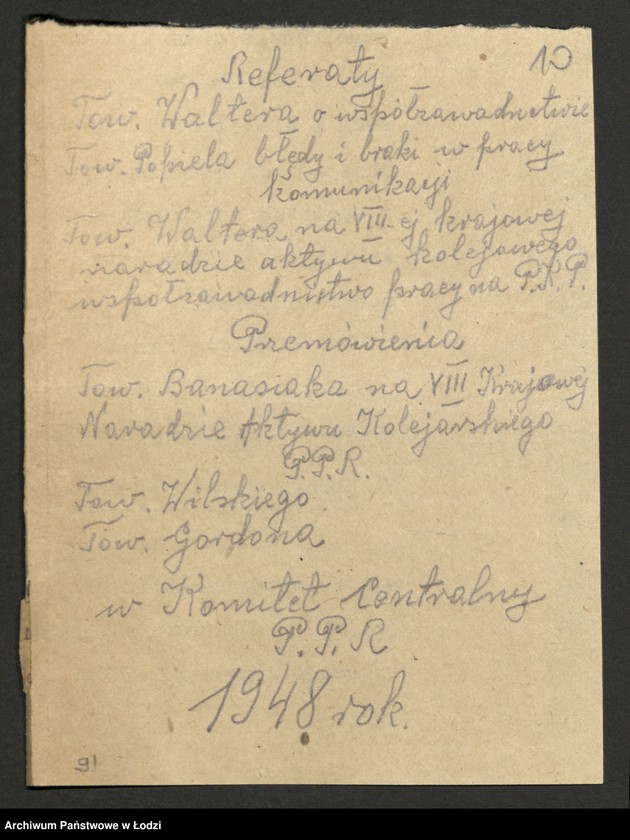 10
Referaty
Tow. Waltera o współzawadnctwie
Tow. Popiela błędy i braki w pracy
komunikacji
Tow. Waltera na VIII-ej krajowej
naradzie aktywu kolejowego
współzawadnictwo pracy na P.K.P.
Przemówienia
Tow. Banasiaka na VIII Krajowej
Naradzie Aktywu Kolejarskiego
P.P.R.
Tow. Wilskiego
Tow. Gordona
w Komitet Centralny
P.P.R
1948 rok.
91
Archiwum Państwowe w Łodzi